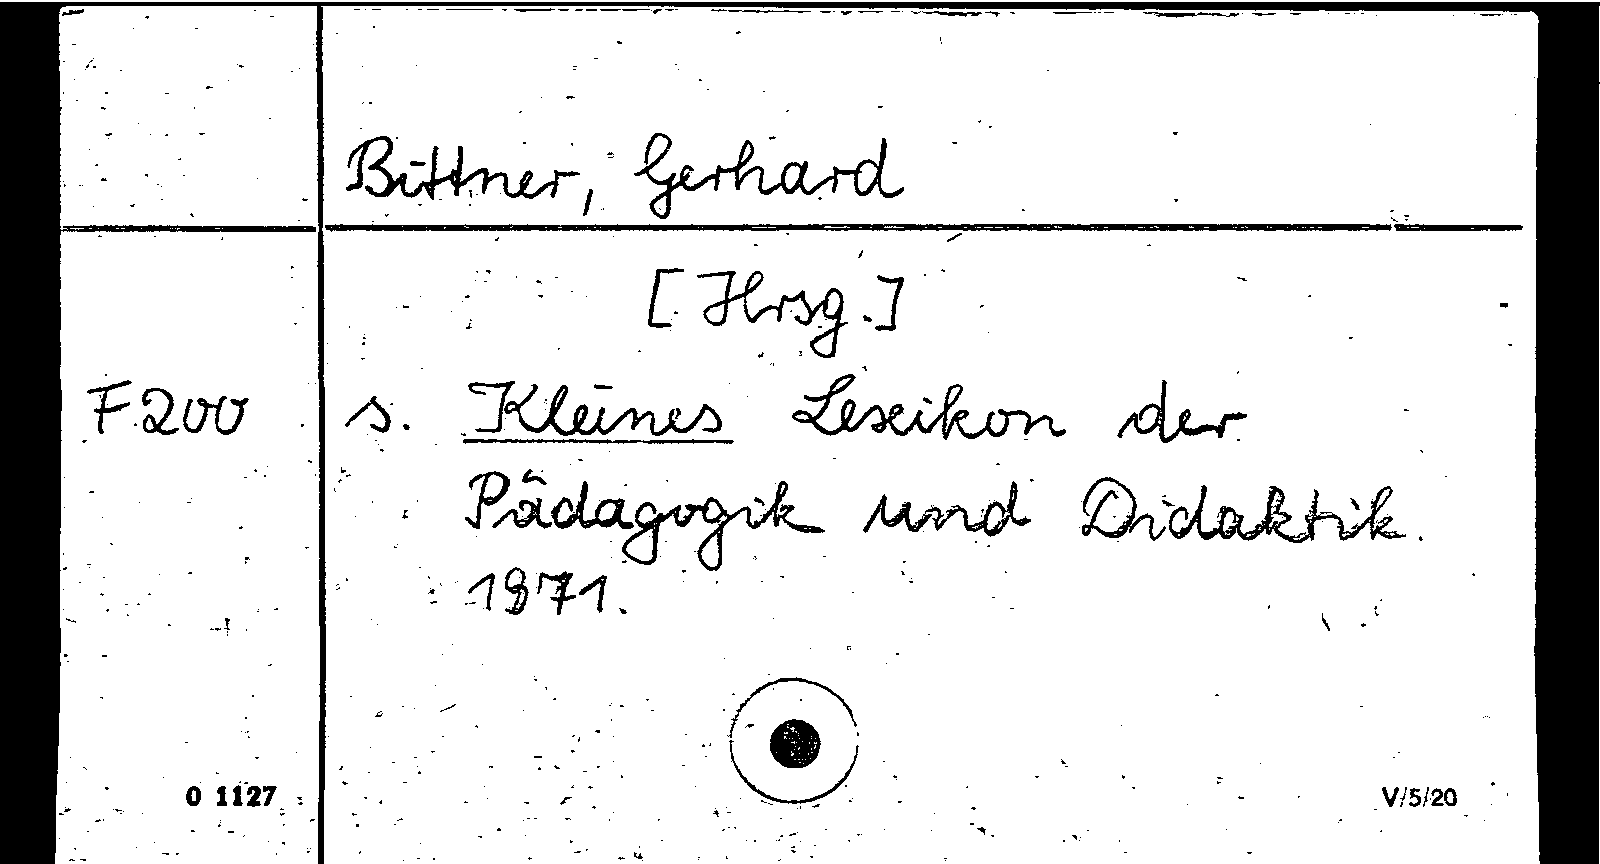 Bittner, Gerhard
[Hrsg.]
F 200 s. Kleines Lexikon der
Pädagogik und Didaktik.
1971.
0 1127 V/5/20